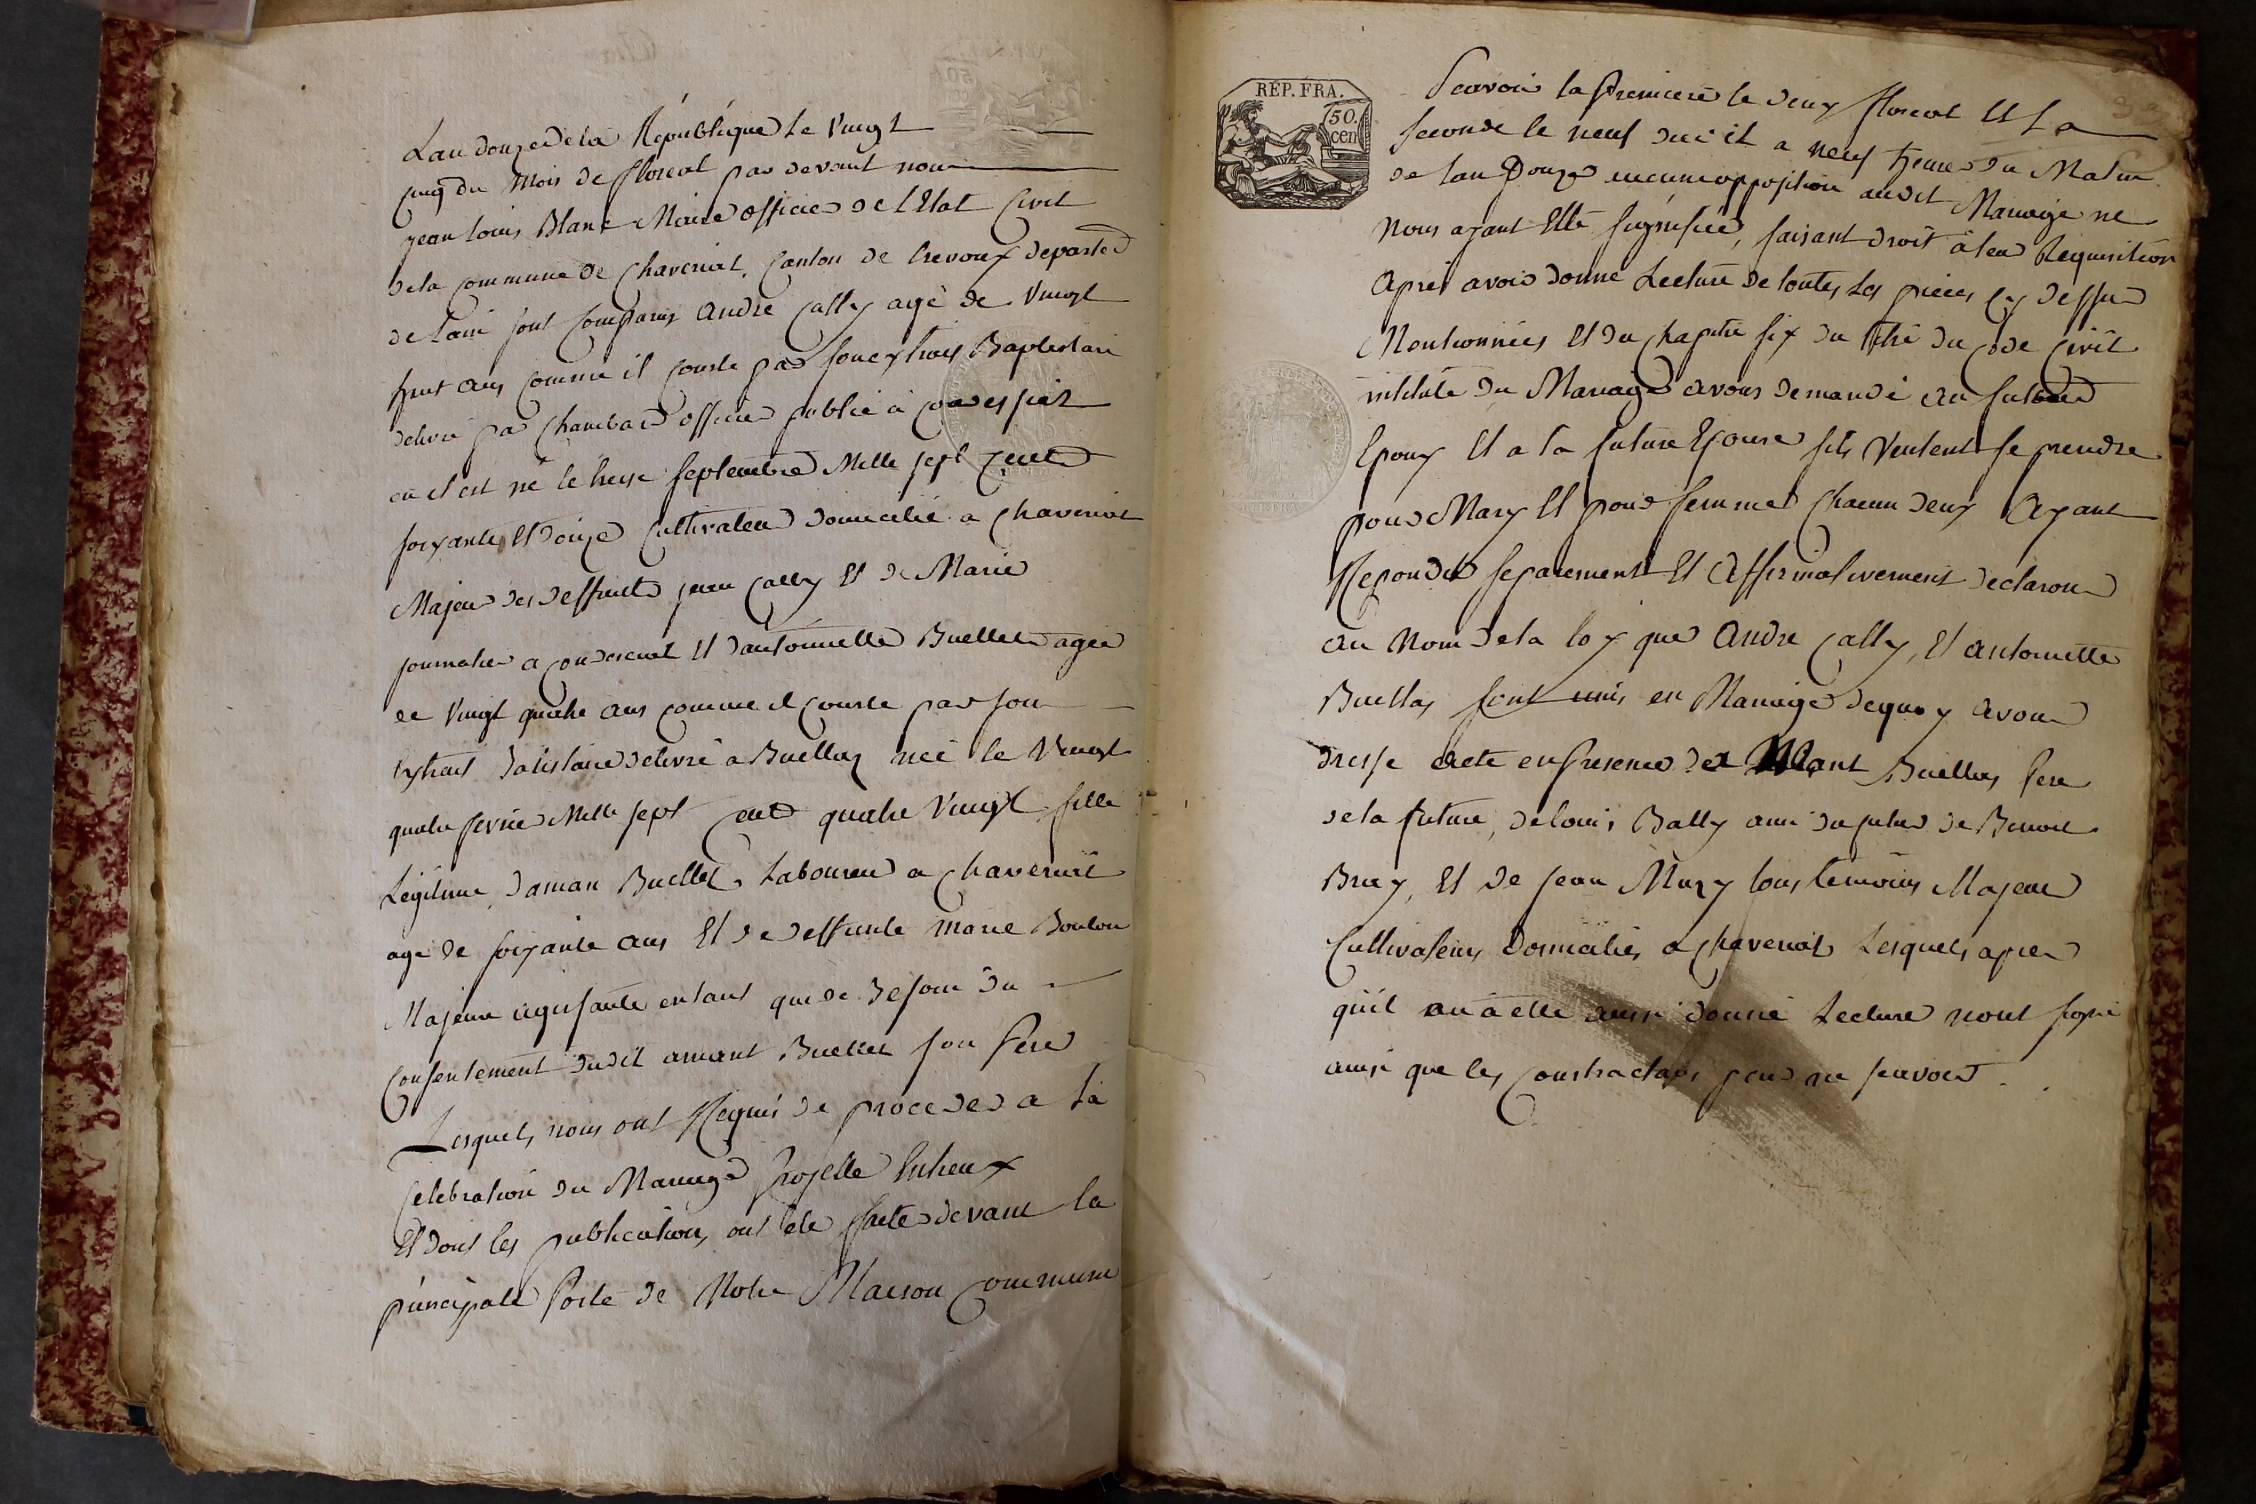 Lan douze de la République le vingt
cinq du mois de floreal par devant nous
jean louis Blanc Maire officier de l'Etat Civil
de la commune de Chaveriat, Canton de trevoux depart
de Lain sont comparus andre Cally agé de vingt
huit ans comme il conste par son extrait Baptistair
delivré par Chambard officier public à
ou il est né le treise septembre Mille sept Cent
soixante et douze Cultivateur domicilié a Chaveriat
Majeur des deffunts jean Cally Et de Marie
journalier a Et dantoinette Buellet agée
de vingt quatre ans comme il conste par son
extrait Batistaire delivré a Buellas née le vingt
quatre fevrier Mille sept Cent quatre vingt fille
Légitime daman Buellet Laboureur a chaveriat
agé de soixante ans Et de deffunte marie Boulon
Majeure agissante entant que de Besoin du
Consentement dudit amant Buellet son Pere
Lesquels nous ont Requis de proceder a la
Celebration du Mariage Projetté Entreux
Et dont les publications ont été faite devant la
principale Porte de Notre Maison Commune
REP. FRA.
50.
cen
Scavoir la Premiere le deux floreal Et La
seconde le neuf dudit a neuf heures du Matin
de lan Douze aucune opposition audit Mariage ne
Nous ayant Etté signifiée, faisant droit à leur Requisition
Après avoir donné Lecture de toutes les pieces cy dessus
Mentionnées Et du chapitre six du titre du Code Civil
intitulé du Mariage avons demandé au futur
Epoux Et a la future Epouse sils veulent se prendre
pour Mary Et pour femme Chacun deux Ayant
Repondu separement Et Affirmativement declarons
au Nom de la loy que Andre Cally, Et antoinette
Buellas sont unis en Mariage dequoy avons
dresse acte en presence de Buellas Pere
de la future, de louis Bally ami du futur de Benoit
Et de Jean Mury tous temoins Majeur
Cultivateurs Domiciliés a chaveriat Lesquels apres
quil aussi donné Lecture nont signé
ainsi que les Contractans pour ne scavoir.